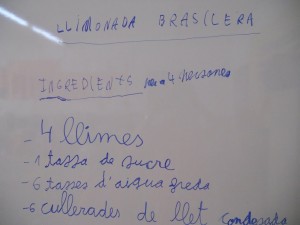 LLIMONADA BRASILERA
INGREDIENTS per a 4 persones
- 4 llimes
- 1 tassa de sucre
- 6 tasses d'aigua freda
- 6 cullerades de llet condensada